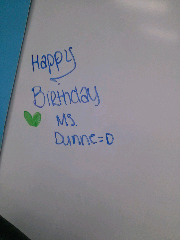 Happy
Birthday
Ms.
Dunne=D